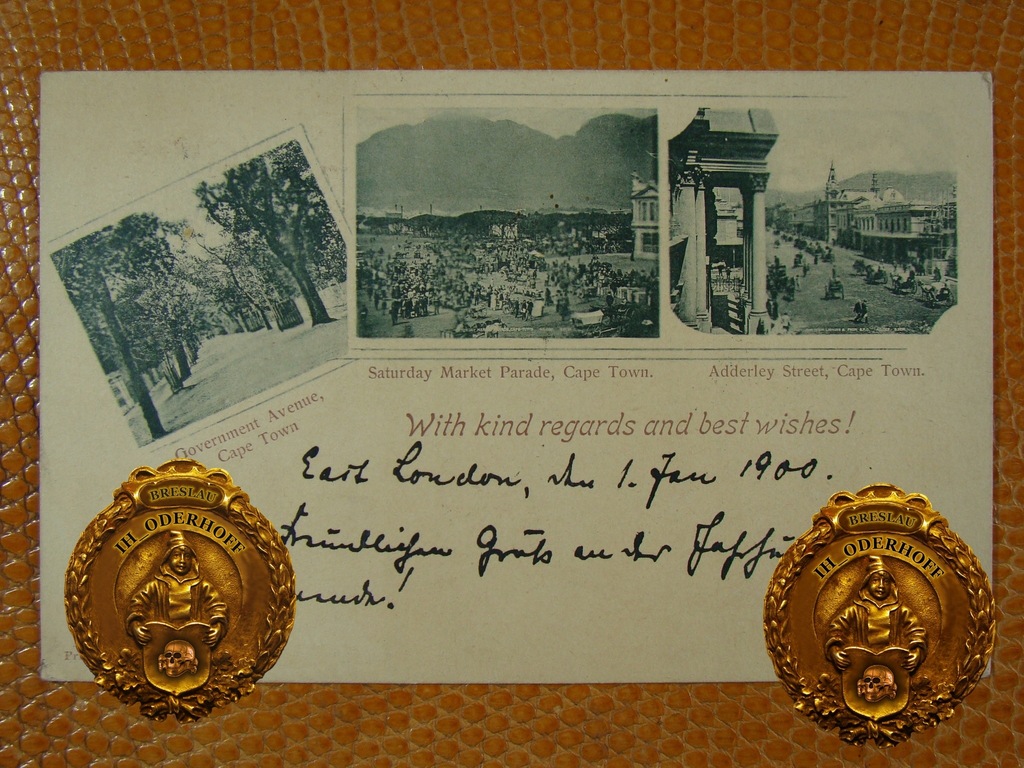 Saturday Market Parade, Cape Town.
Adderley Street, Cape Town.
Government Avenue,
Cape Town
With kind regards and best wishes!
East London, den 1. Jan 1900.
Freundlichen Gruß an der
BRESLAU
IH_ODERHOFF
BRESLAU
IH_ODERHOFF